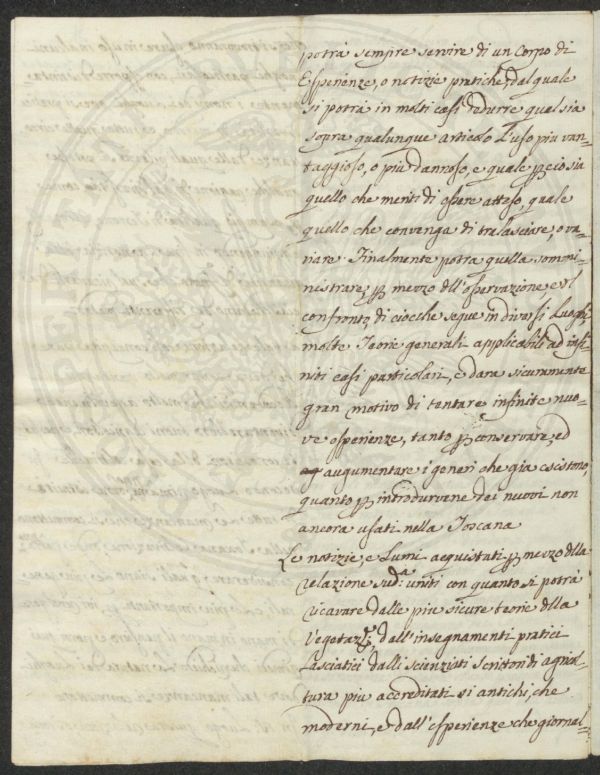 potrà sempre servire di un Corpo di
Esperienze, o notizie pratiche, dal quale
si potrà in molti casi dedurre qual sia
sopra qualunque articolo l'uso piu van-
taggioso, o più dannoso, e quale p ciò sia
quello che meriti di essere atteso, quale
quello che convenga di tralasciare, o va-
riare. Finalmente potrà quella sommi-
nistrare, p mezzo dell'osservazione e il
confronto di ciocche segue in diversi Luoghi,
molte Teorie generali applicabili ad infi-
niti casi particolari, e darà sicuramente
gran motivo di tentare infinite nuo-
ve esperienze, tanto p conservare, ed
augumentare i generi che già esistono,
quanto p introdurvene dei nuovi non
ancora usati nella Toscana
Le notizie, e Lumi acquistati p mezzo dlla
relazione sudª: uniti con quanto si potrà
ricavare dalle più sicure teorie dlla
Vegetaze, dall'insegnamenti pratici
lasciatici dalli scienziati Scrittori di agricol-
tura piu accreditati si antichi, che
moderni, e dall'esperienze che giornal-